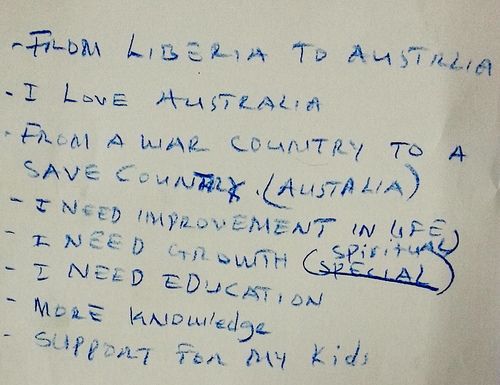 - FROM LIBERIA TO AUSTRLIA
- I LOVE AUSTRALIA
- FROM A WAR COUNTRY TO A
SAVE COUNTRY. (AUSTALIA)
- I NEED IMPROVEMENT IN LIFE)
- I NEED GROWTH (SPIRITUAL
SPECIAL)
- I NEED EDUCATION
- MORE KNOWledge
- SUPPORT FOR MY Kids